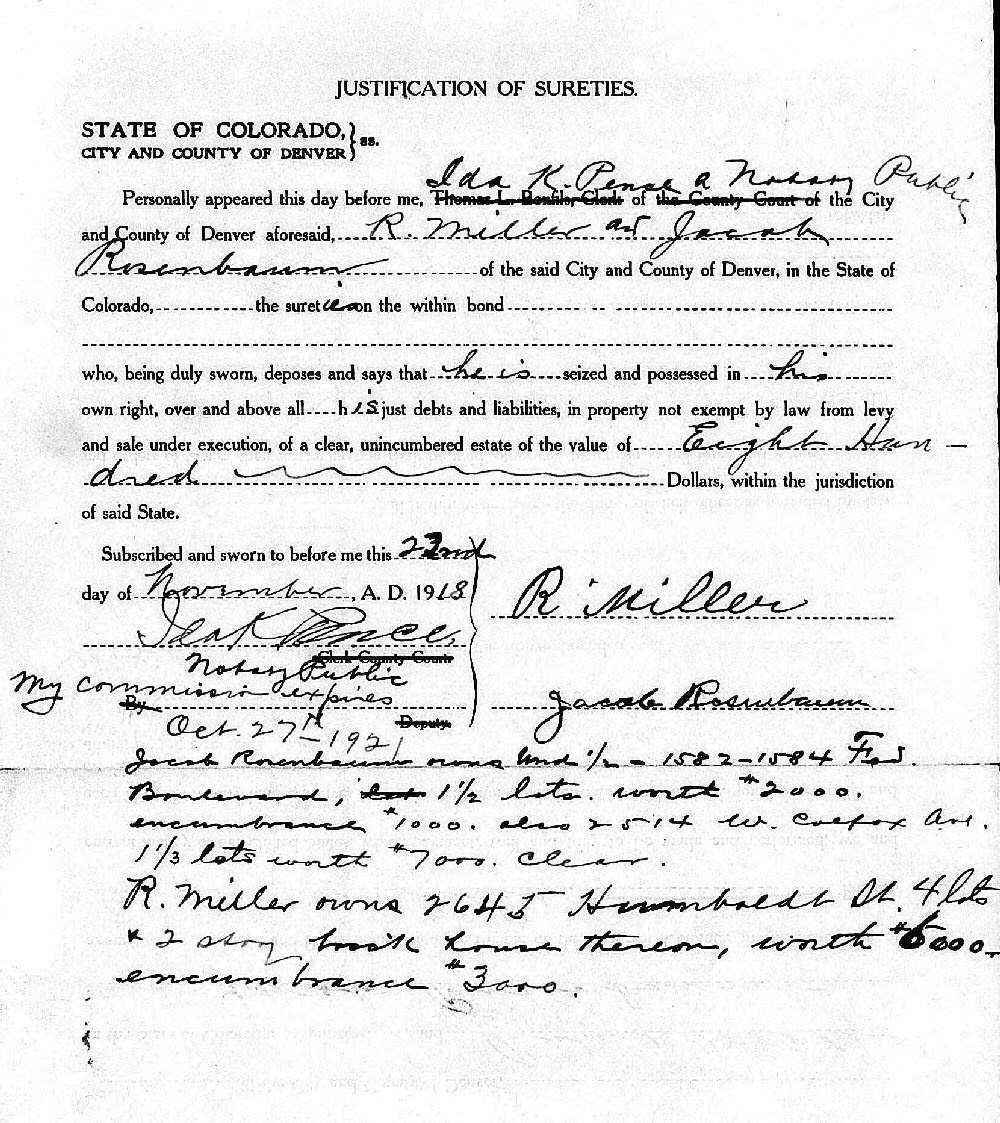 JUSTIFICATION OF SURETIES.
STATE OF COLORADO, } ss.
CITY AND COUNTY OF DENVER
Ida K. Pense a Notary Public
Personally appeared this day before me, Thomas L. Bonfils Clerk of the County Court of the City
and County of Denver aforesaid, R. Miller and Jacob
Rosenbaum of the said City and County of Denver, in the State of
Colorado, the sureties on the within bond
who, being duly sworn, deposes and says that he is seized and possessed in his
own right, over and above all his just debts and liabilities, in property not exempt by law from levy
and sale under execution, of a clear, unincumbered estate of the value of Eight Hun-
dred Dollars, within the jurisdiction
of said State.
Subscribed and sworn to before me this 22nd
day of November, A. D. 1918
R. Miller
Ida K Pence
Clerk County Court
Notary Public
My commission expires
By
Jacob Rosenbaum
Oct. 27th 1921
Deputy.
Jacob Rosenbaum owns Und 1/2 - 1582-1584 Fed.
Boulevard, 1 1/2 lots. worth $2000.
encumbrance $1000. also 2514 W. Colfax Ave.
1 1/3 lots worth $7000. Clear.
R. Miller owns 2645 Humboldt St. 4 lots
& 2 story brick house thereon, worth $6000-
encumbrance $3000.